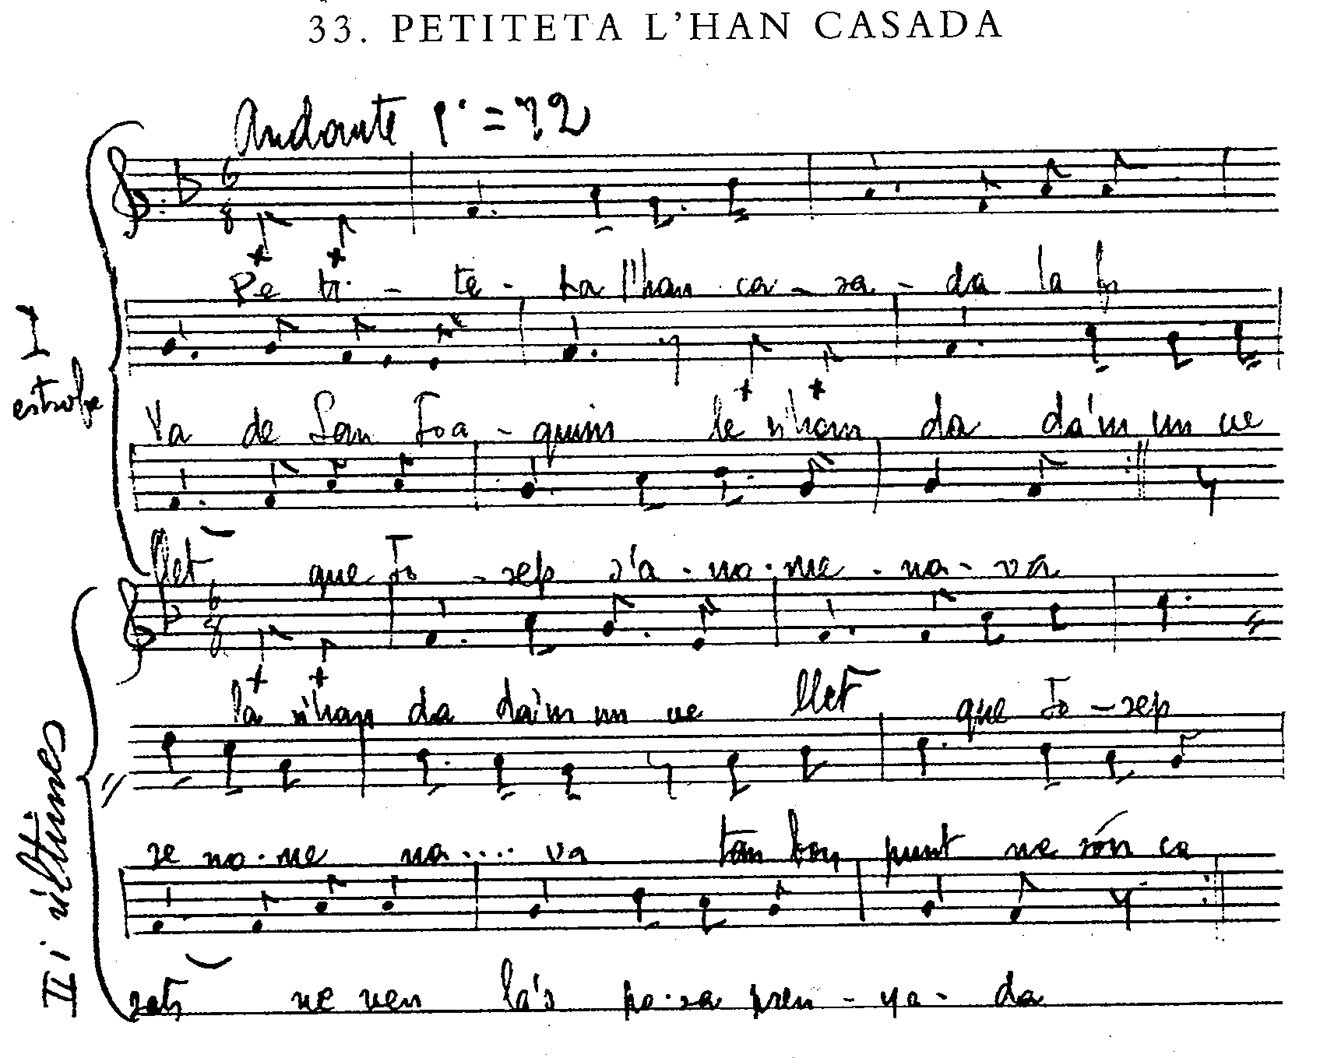 33. PETITETA L'HAN CASADA
Andante ♩. = 72
6
8
Pe ti - te - ta l'han ca - sa - da la fi
I
estrofa
lla de San Joa - quim le n'han da da'm un ve
llet que Jo - sep s'a - no - me - na - va
6
8
la n'han da da'm un ve llet que Jo - sep
II i últimes
se no - me na .... va tan bon punt ne són ca
sats ne ven la's po - sa pren - ya - da